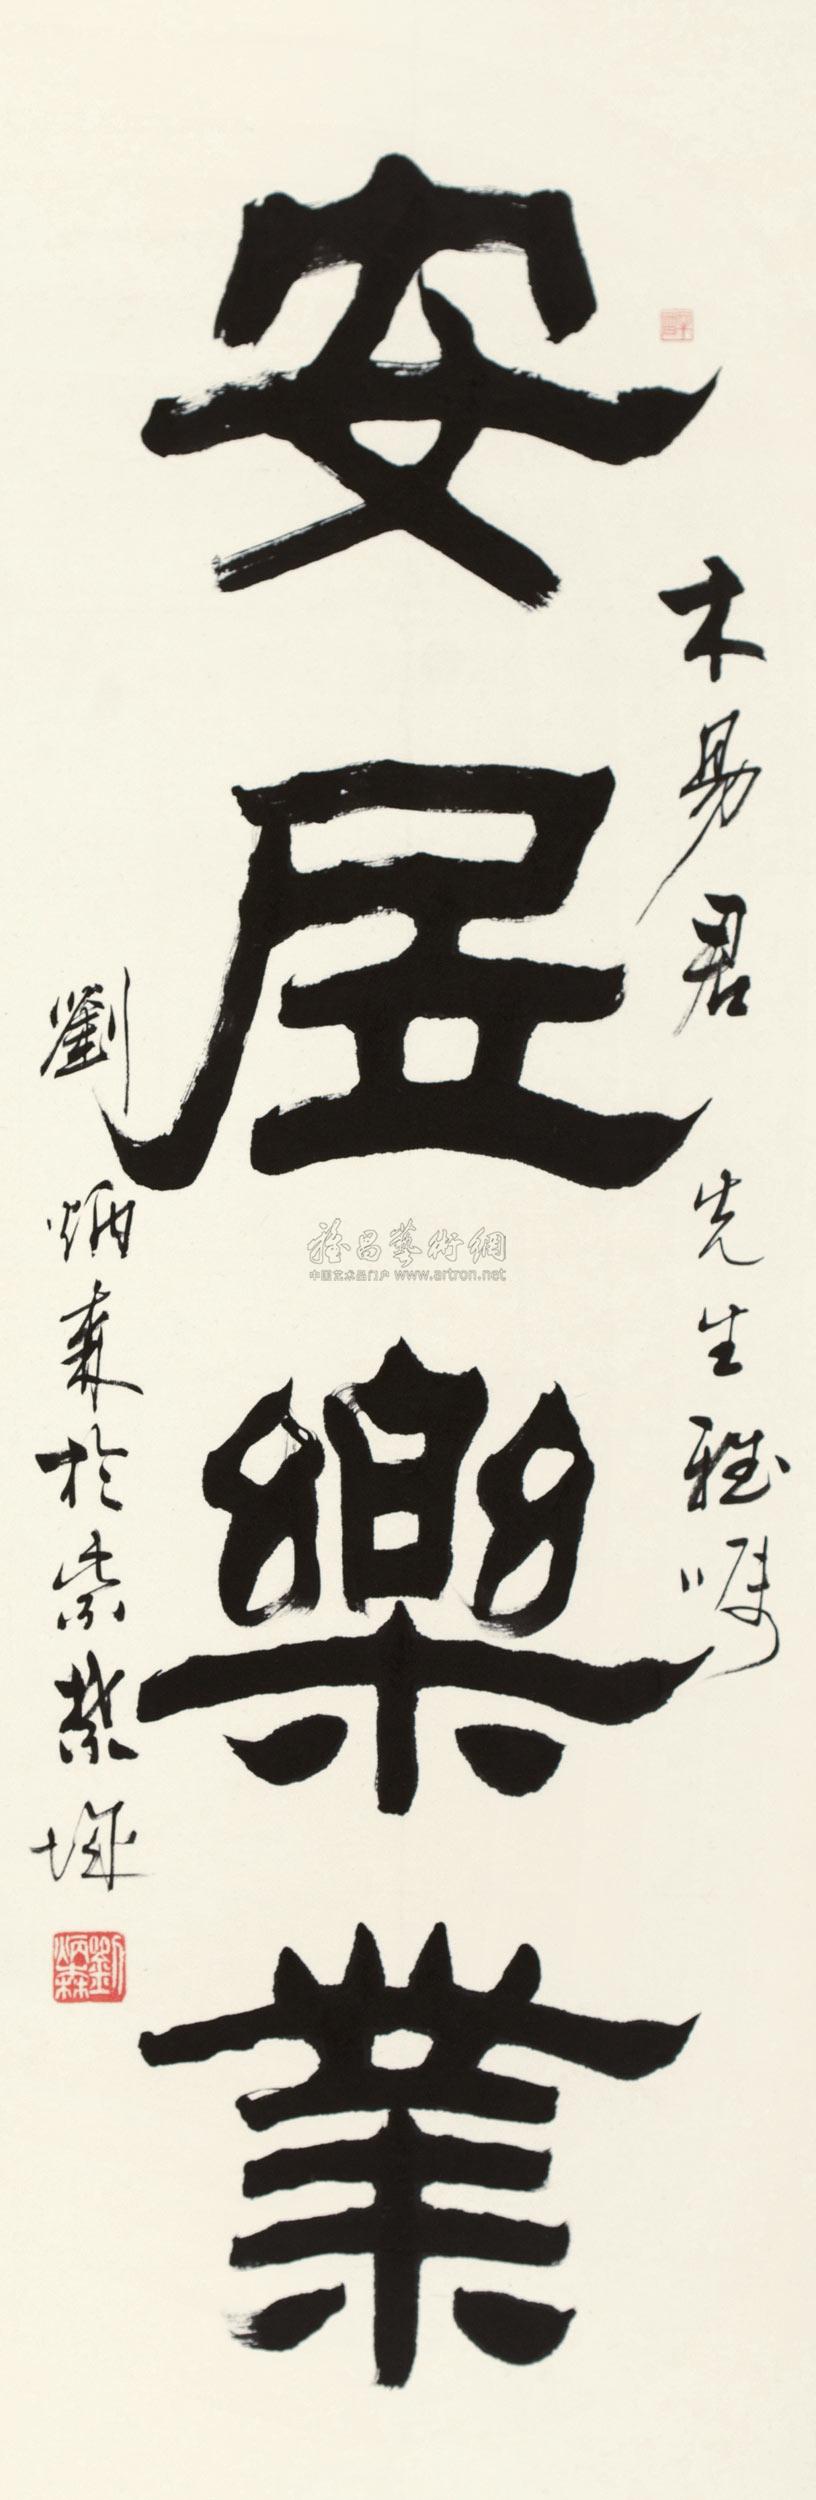 木易君 先生雅嘱
安居樂業
劉炳森於紫禁城
劉炳森
雅昌藝術網
中国艺术品门户 www.artron.net